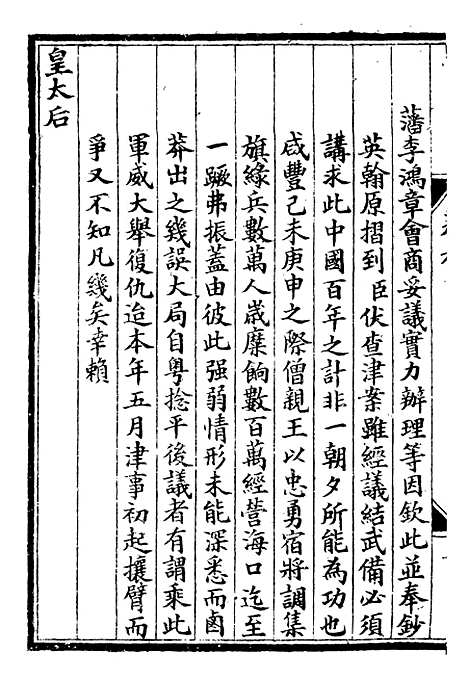 藩李鴻章會商妥議實力辦理等因欽此並奉鈔
英翰原摺到臣伏查津案雖經議結武備必須
講求此中國百年之計非一朝夕所能為功也
咸豐己未庚申之際僧親王以忠勇宿將調集
旗緣兵數萬人歲糜餉數百萬經營海口迄至
一蹶弗振蓋由彼此强弱情形未能深悉而鹵
莽出之幾誤大局自粵捻平後議者有謂乘此
軍威大舉復仇迨本年五月津事初起攘臂而
爭又不知凡幾矣幸賴
皇太后